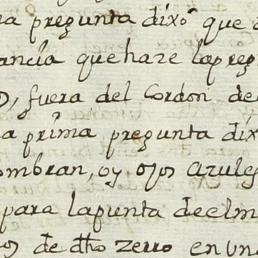 a pregunta dixo que
ancia que haze la preg
D, fuera del Cordon de
a prima pregunta dix
ombran, oy ojos azules
para la punta de elm
os de dho zerro en un